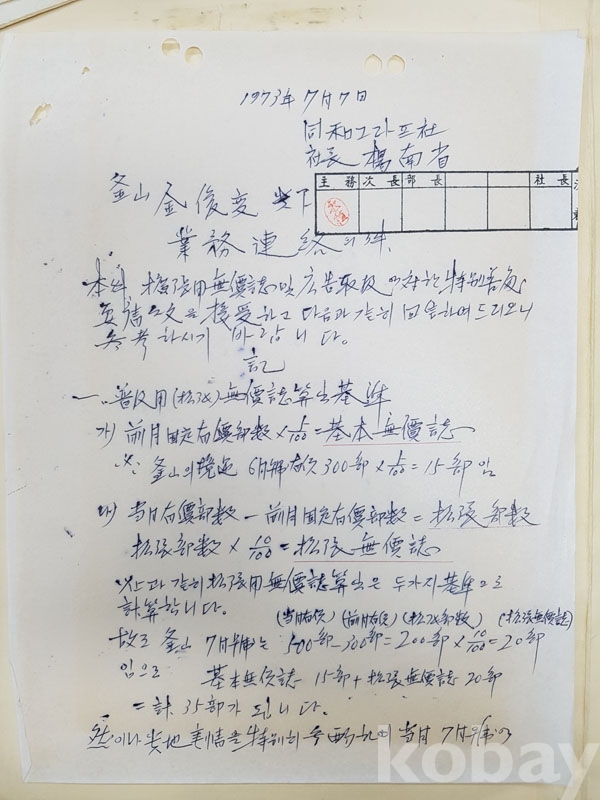 1973年 7月 7日
同和그라프社
社長 楊南省
主務 次長 部長 社長
釜山 金俊変 貴下
業務連絡의件
本社 擴張用無價誌 및 広告取扱에 対한 特別善処
要請文을 接受하고 다음과 같이 回答하여 드리오니
参考하시기 바랍니다.
記
一. 普及用(拡張)無價誌算出基準
가) 前月固定有價部数 × 5/100 = 基本無價誌
※ 釜山의境遇 6月号有价 300部 × 5/100 = 15部 임
나) 当月有價部数 - 前月固定有價部数 = 拡張部数
拡張部数 × 10/100 = 拡張無價誌
以上과 같이 拡張用無價誌算出은 두가지 基準으로
計算합니다.
(当月有价) (前月有价) (拡張部数) (拡張無價誌)
故로 釜山 7月号는 500部-300部=200部×10/100=20部
임으로 基本無價誌 15部+拡張無價誌 20部
=計 35部가 됩니다.
然이나 当地事情을 特別히 当月 7月号에
kobay